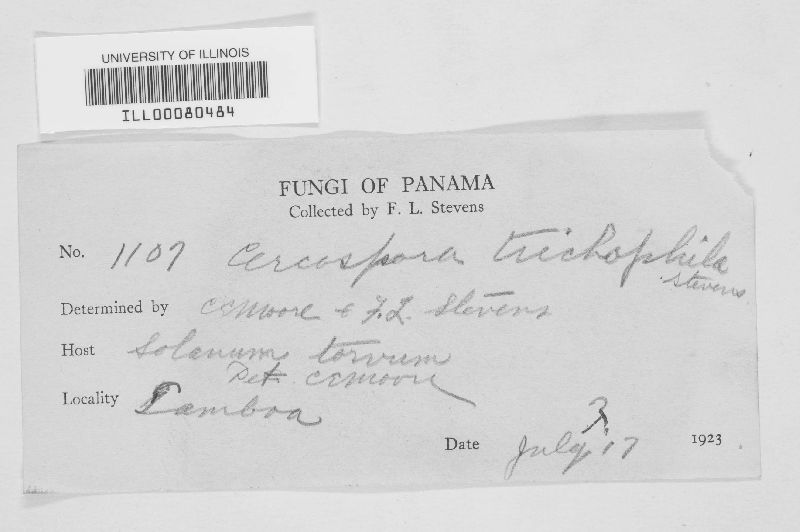 UNIVERSITY OF ILLINOIS
ILL00080484
FUNGI OF PANAMA
Collected by F. L. Stevens
No. 1107 Cercospora trichophila
Stevens
Determined by CCMoore & F.L. Stevens
Host Solanum torvum
Det CCMoore
Locality Gamboa
?
Date July 17 1923